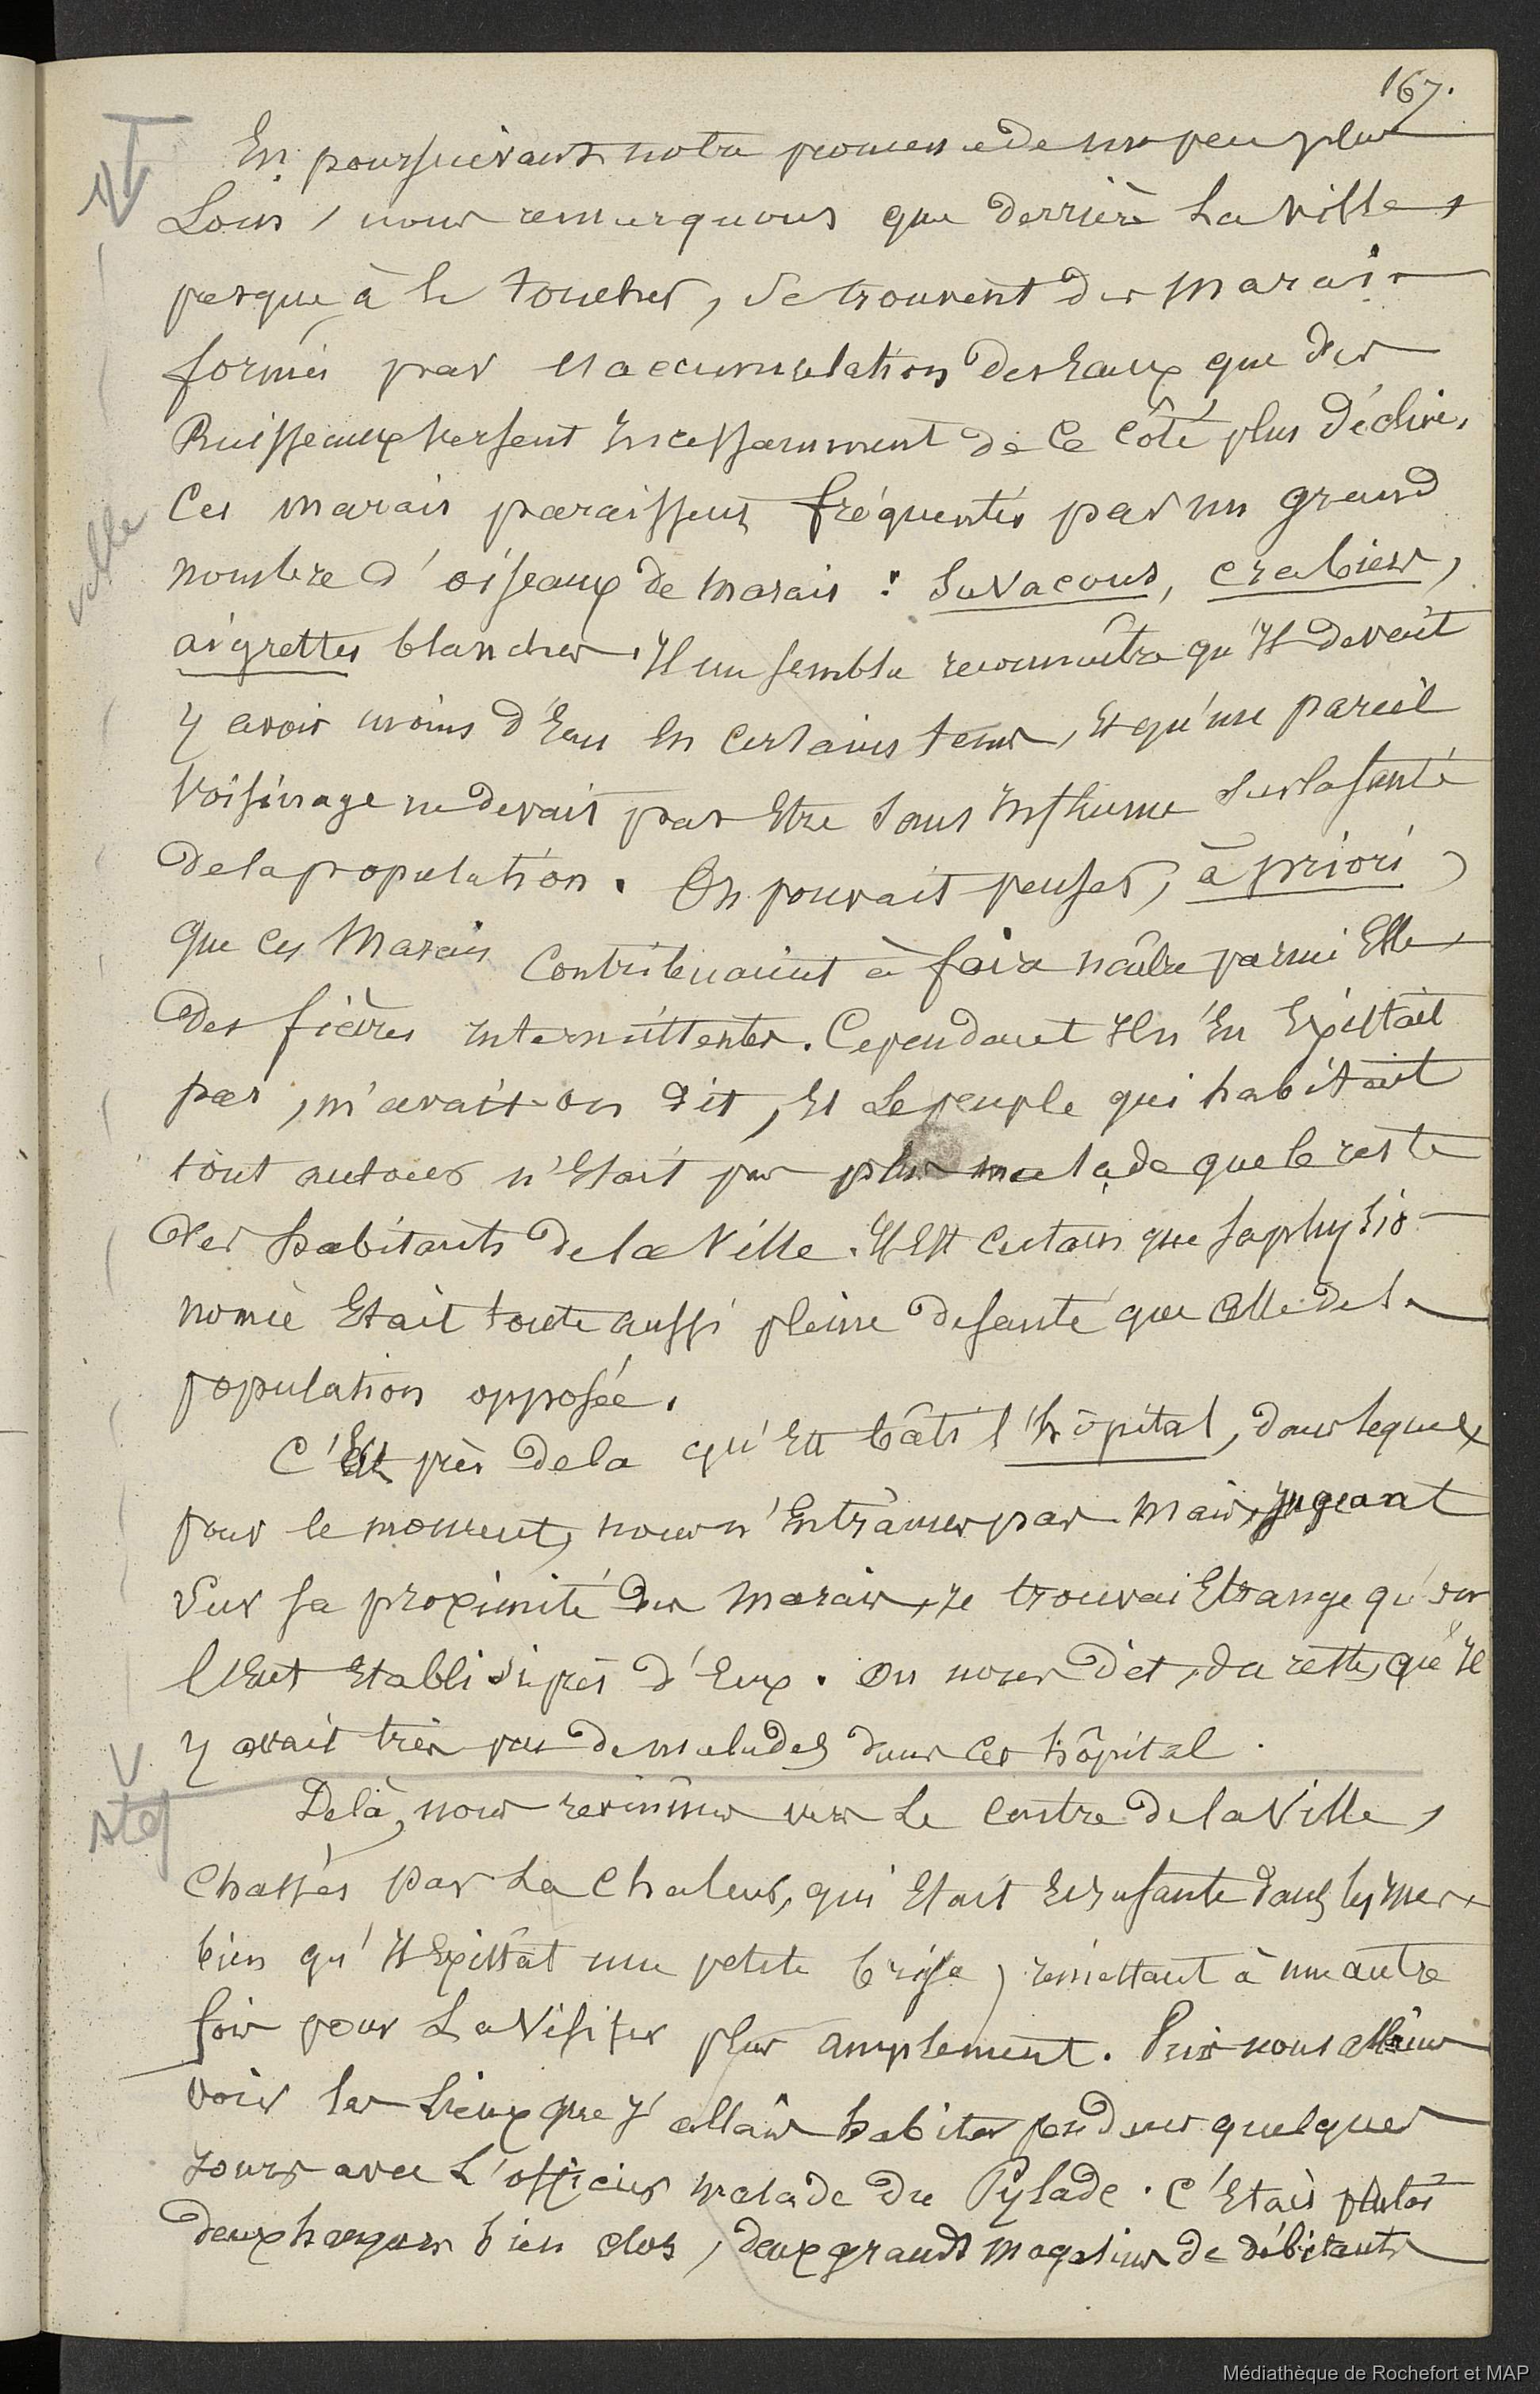 167.
En poursuivant notre promenade un peu plus
Loin, nous remarquons que derrière La ville,
presque à la toucher, se trouvent des marais
formés par l'accumulation des Eaux que des
Ruisseaux versent Incessamment de ce côté plus déclive.
Ces marais paraissent fréquentés par un grand
nombre d'oiseaux de marais : Savacous, crabiers,
aigrettes blanches. Il me sembla reconnaître qu'Il devait
y avoir moins d'Eau En Certains tems, Et qu'un pareil
Voisinage ne devait pas Etre sans Influence sur la santé
de la population. On pouvait penser, à priori,
que ces Marais Contribuaient à faire naître parmi Elle,
des fièvres intermittentes. Cependant Il n'En Existait
pas, m'avait-on dit, Et Le peuple qui habitait
tout autour n'Etait pas plus malade que le reste
des habitants de la Ville. Il Est Certain que sa physio-
nomie Etait toute aussi pleine de santé que Celle de la
population opposée.
C'Est près de la qu'Est bâti l'hôpital, dans lequel,
pour le moment, nous n'Entrâmes pas mais, Jugeant
Sur sa proximité des marais, Je trouvai Etrange qu'on
l'Eut Etabli si près d'Eux. On nous dit, du reste, qu'Il
y avait très peu de malades dans cet hôpital.
De là, nous revinmes vers Le Centre de la Ville,
Chassés par La Chaleur, qui Etait Ecrasante dans les rues,
bien qu'Il Existât une petite brise, remettant à une autre
fois pour La Visiter plus amplement. Puis nous allâmes
voir les Lieux que J'allais habiter pendant quelques
Jours avec L'officier malade du Pylade. C'Etais plutôt
deux hangars bien clos, deux grands magasins de débitants
valle
Steg